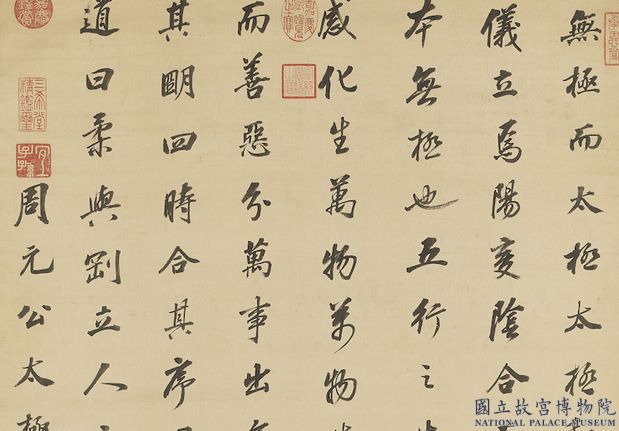 無極而太極太極
儀立焉陽變陰合
本無極也五行之
感化生萬物萬物
而善惡分萬事出
其明四時合其序
道曰柔與剛立人
周元公太極
三希堂精鑑璽
宜子孫
國立故宮博物院
NATIONAL PALACE MUSEUM